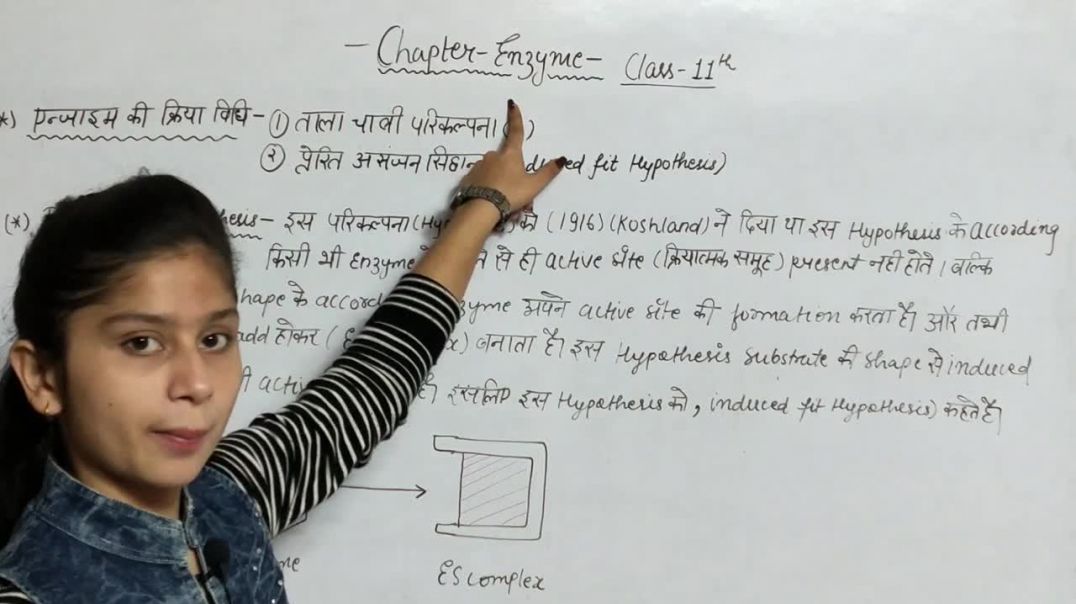 - Chapter-Enzyme- Class-11th
*) एन्जाइम की क्रिया विधि- ① ताला चाबी परिकल्पना
② प्रेरित fit Hypothesis)
(*) इस परिकल्पना को (1916) (Koshland) ने दिया था इस Hypothesis के according
किसी भी Enzyme से ही active site (क्रियात्मक समूह) present नही होते। बल्कि
के अपने active site की formation करता है। और तभी
add होकर ( बनाता है। इस Hypothesis substrate की shape से induced
इसलिए इस Hypothesis को, induced fit Hypothesis) कहते है।
ES complex